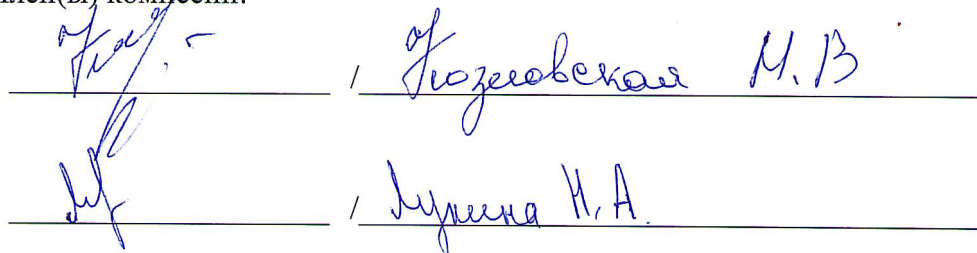 член(ы) комиссии:
/ Козловская М. В
/ Лунина Н. А.